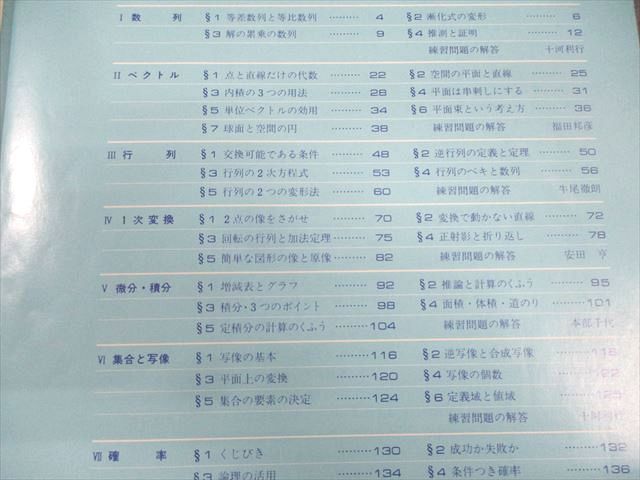 I 数　列　§1 等差数列と等比数列 ……… 4　§2 漸化式の変形 ……… 6
§3 解の累乗の数列 ……… 9　§4 推測と証明 ……… 12
練習問題の解答　十河利行
II ベクトル　§1 点と直線だけの代数 ……… 22　§2 空間の平面と直線 ……… 25
§3 内積の3つの用法 ……… 28　§4 平面は串刺しにする ……… 31
§5 単位ベクトルの効用 ……… 34　§6 平面束という考え方 ……… 36
§7 球面と空間の円 ……… 38　練習問題の解答　福田邦彦
III 行　列　§1 交換可能である条件 ……… 48　§2 逆行列の定義と定理 ……… 50
§3 行列の2次方程式 ……… 53　§4 行列のベキと数列 ……… 56
§5 行列の2つの変形法 ……… 60　練習問題の解答　牛尾徹朗
IV 1次変換　§1 2点の像をさがせ ……… 70　§2 変換で動かない直線 ……… 72
§3 回転の行列と加法定理 ……… 75　§4 正射影と折り返し ……… 78
§5 簡単な図形の像と原像 ……… 82　練習問題の解答　安田　亨
V 微分・積分　§1 増減表とグラフ ……… 92　§2 推論と計算のくふう ……… 95
§3 積分・3つのポイント ……… 98　§4 面積・体積・道のり ……… 101
§5 定積分の計算のくふう ……… 104　練習問題の解答　本部千代
VI 集合と写像　§1 写像の基本 ……… 116　§2 逆写像と合成写像 ……… 118
§3 平面上の変換 ……… 120　§4 写像の個数 ……… 122
§5 集合の要素の決定 ……… 124　§6 定義域と値域 ……… 125
練習問題の解答　十河利行
VII 確　率　§1 くじびき ……… 130　§2 成功か失敗か ……… 132
§3 論理の活用 ……… 134　§4 条件つき確率 ……… 136